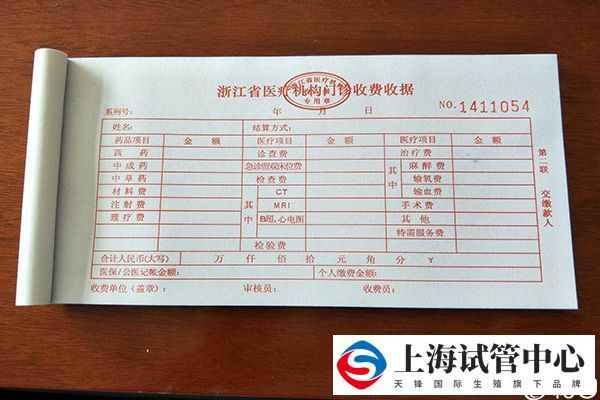 浙江省医疗机构门诊收费收据
浙江省医疗机构
专用章
系列号: 年 月 日 NO.1411054
姓名: 结算方式:
药品项目 金额 医疗项目 金额 医疗项目 金额
西药 诊查费 治疗费
中成药 急诊留观床位费 其中 麻醉费
中草药 检查费 输氧费
材料费 其中 CT 输血费
注射费 MRI 手术费
理疗费 B超、心电图 其他
特需服务费
检验费
合计人民币(大写) 万 仟 佰 拾 元 角 分 ¥
医保/公医记帐金额: 个人缴费金额:
收费单位(盖章): 审核员: 收费员:
第二联 交缴款人
上海试管中心
天锋国际生殖旗下品牌